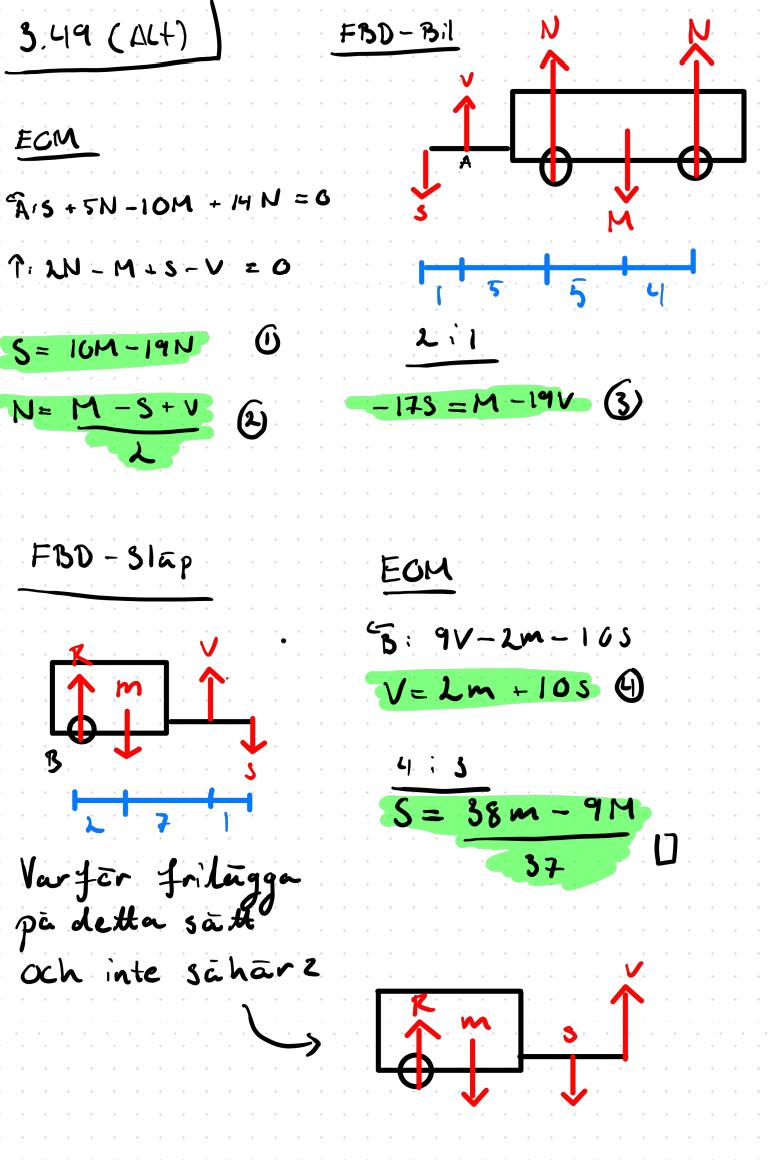 3.49 (Alt)
FBD-Bil
N
N
V
A
S
M
1 5 5 4
EOM
A: S + 5N - 10M + 14N = 0
↑: 2N - M + S - V = 0
S = 10M - 19N ①
N = M - S + V ②
2
2 i 1
-17S = M - 19V ③
FBD - Släp
R
m
V
B
S
2 7 1
EOM
B: 9V - 2m - 10S
V = 2m + 10S ④
4 i 3
S = 38m - 9M
37
Varför frilägga
på detta sätt
och inte såhär?
R
m
S
V